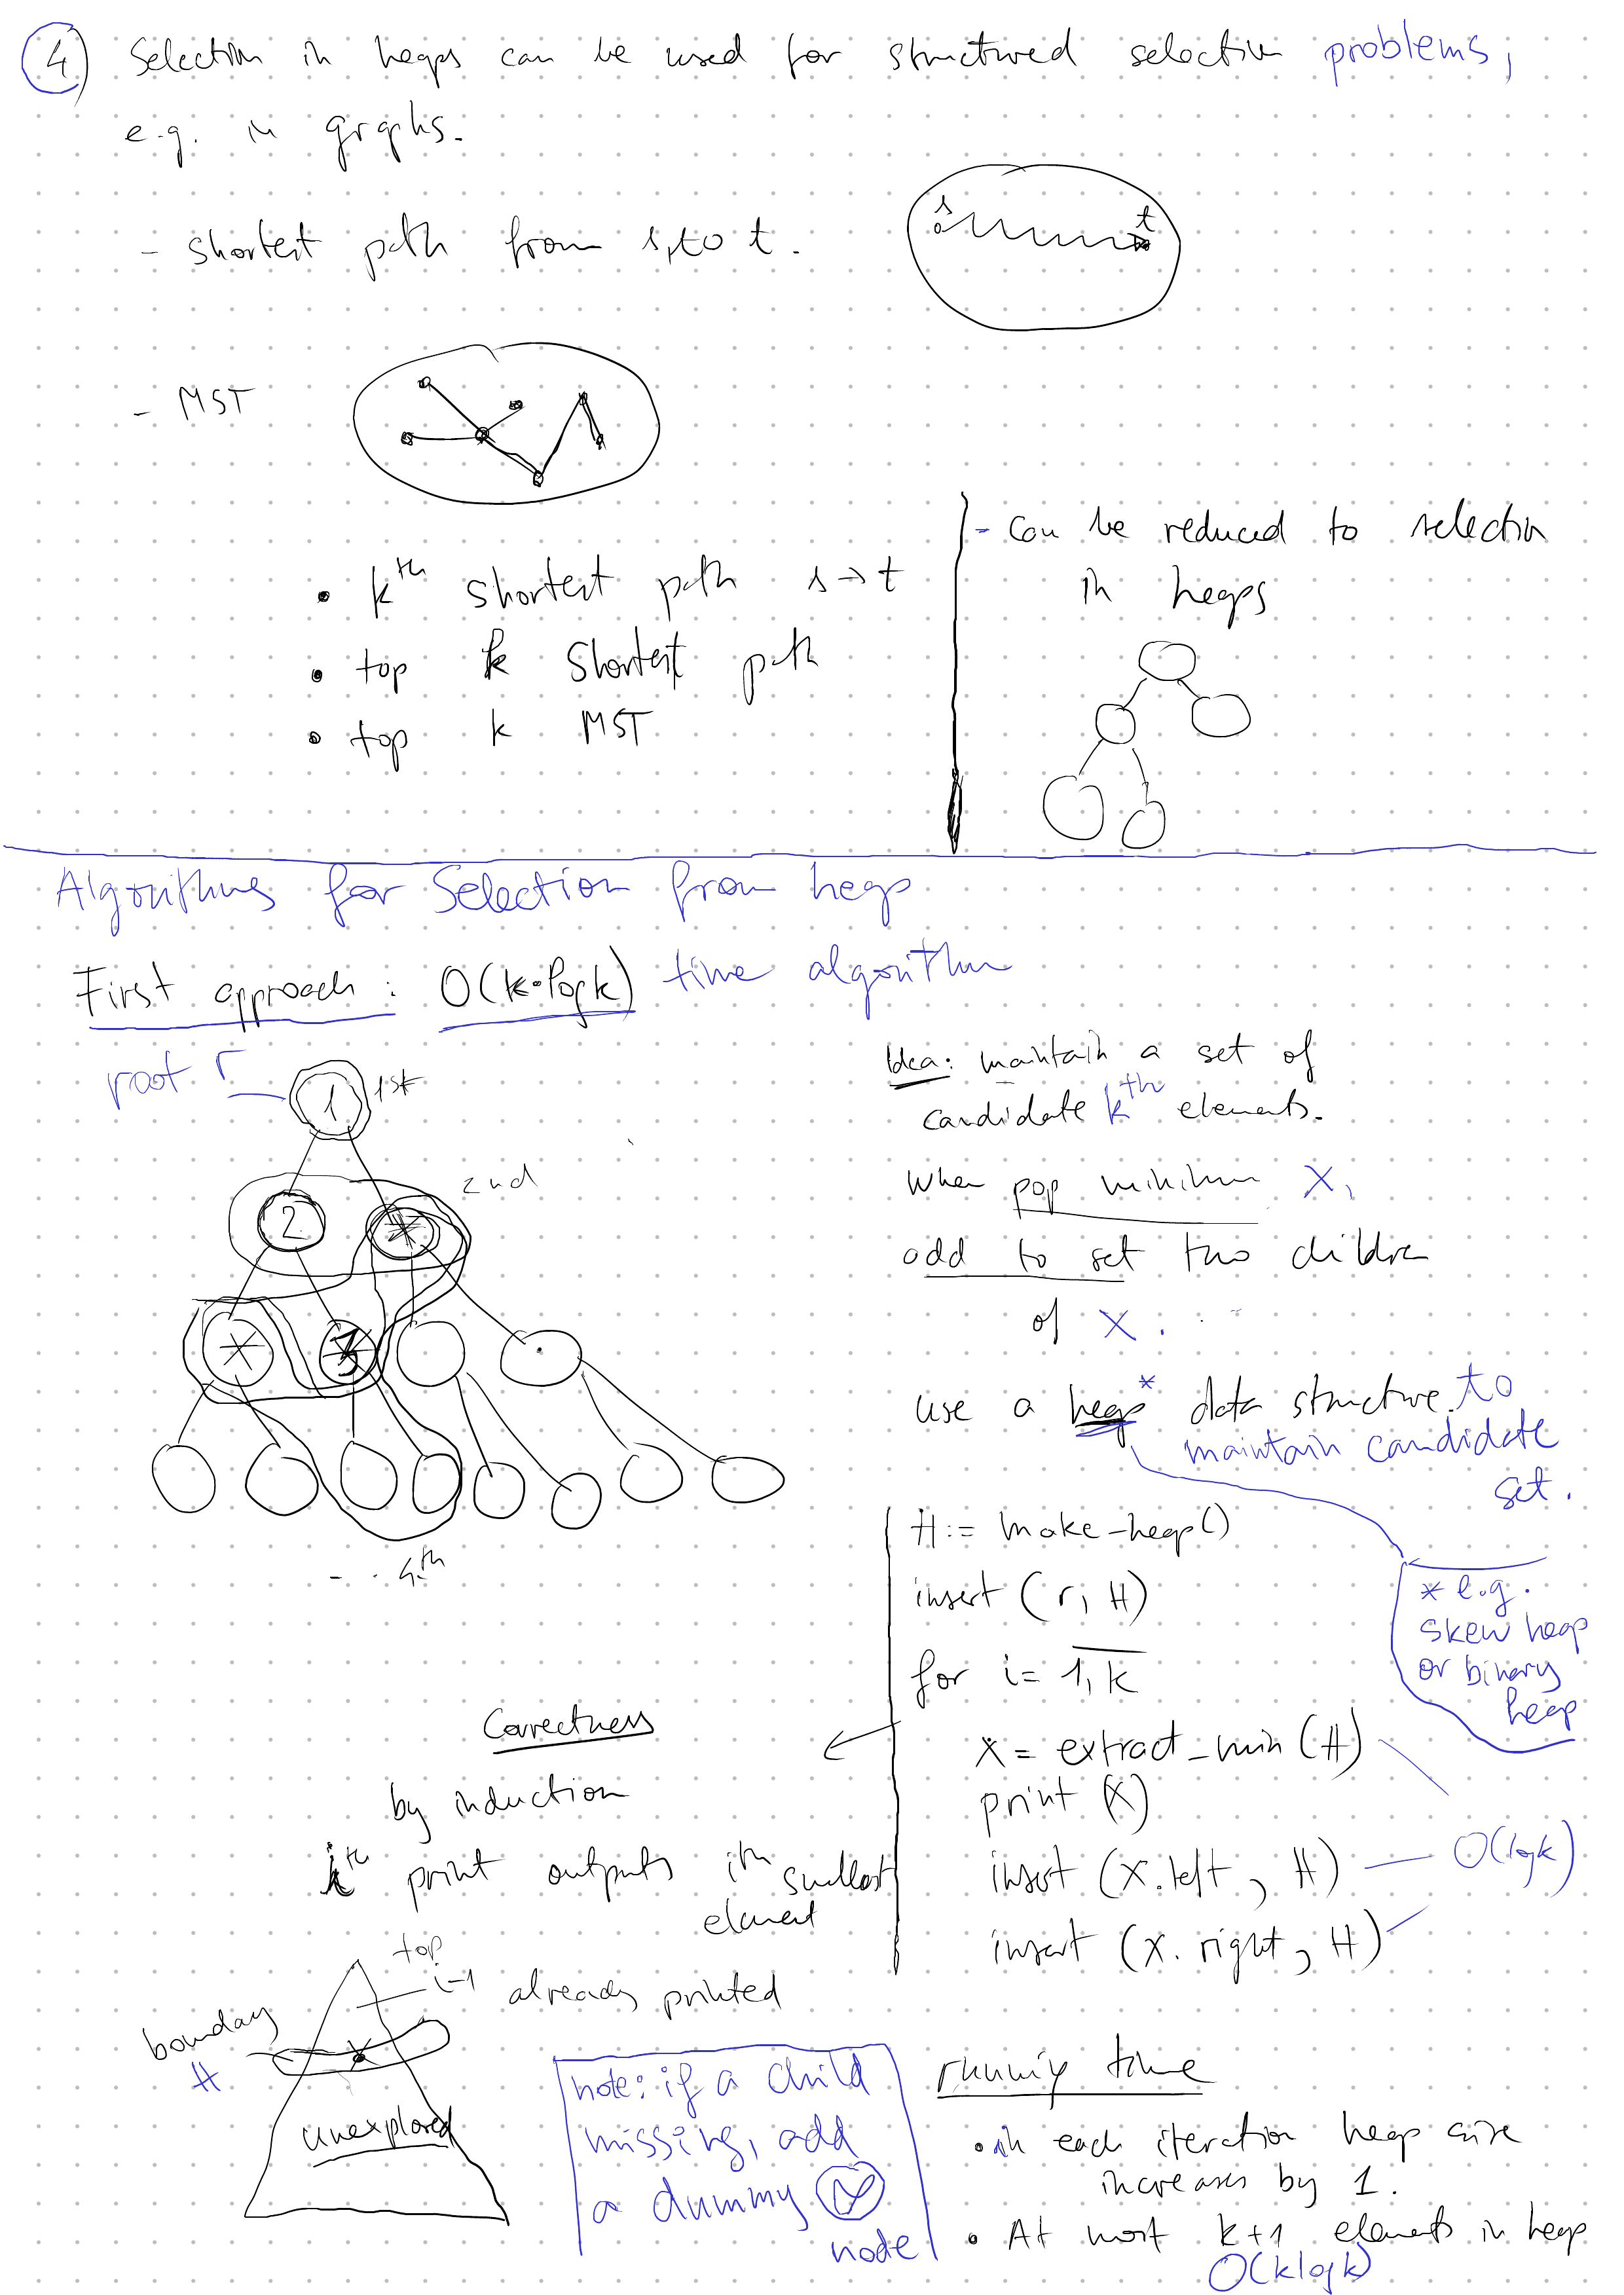 4 Selection in heaps can be used for structured selection problems,
e.g. in graphs.
- shortest path from s, to t.
s t
- MST
• kth shortest path s → t
• top k shortest path
• top k MST
- can be reduced to selection
in heaps
Algorithms for Selection from heap
First approach: O(k·log k) time algorithm
root r
1 1st
2 2nd
3
- . 4th
Idea: maintain a set of
candidate kth elements.
when pop minimum x,
add to set two children
of x.
use a heap* data structure to
maintain candidate
set.
* e.g.
skew heap
or binary
heap
H := make-heap()
insert (r, H)
for i = 1, k
x = extract_min (H)
print (x)
insert (x.left, H)
insert (x.right, H)
O(log k)
Correctness
by induction
ith print outputs ith smallest
element
top
i-1 already printed
boundary
H
x
unexplored
note: if a child
missing, add
a dummy
node
running time
• in each iteration heap size
increases by 1.
• At most k+1 elements in heap
O(k log k)